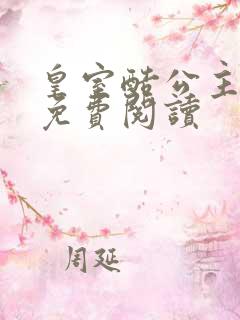 皇室酷公主
免費閱讀
周延